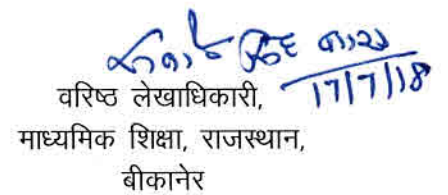 17/7/18
वरिष्ठ लेखाधिकारी,
माध्यमिक शिक्षा, राजस्थान,
बीकानेर